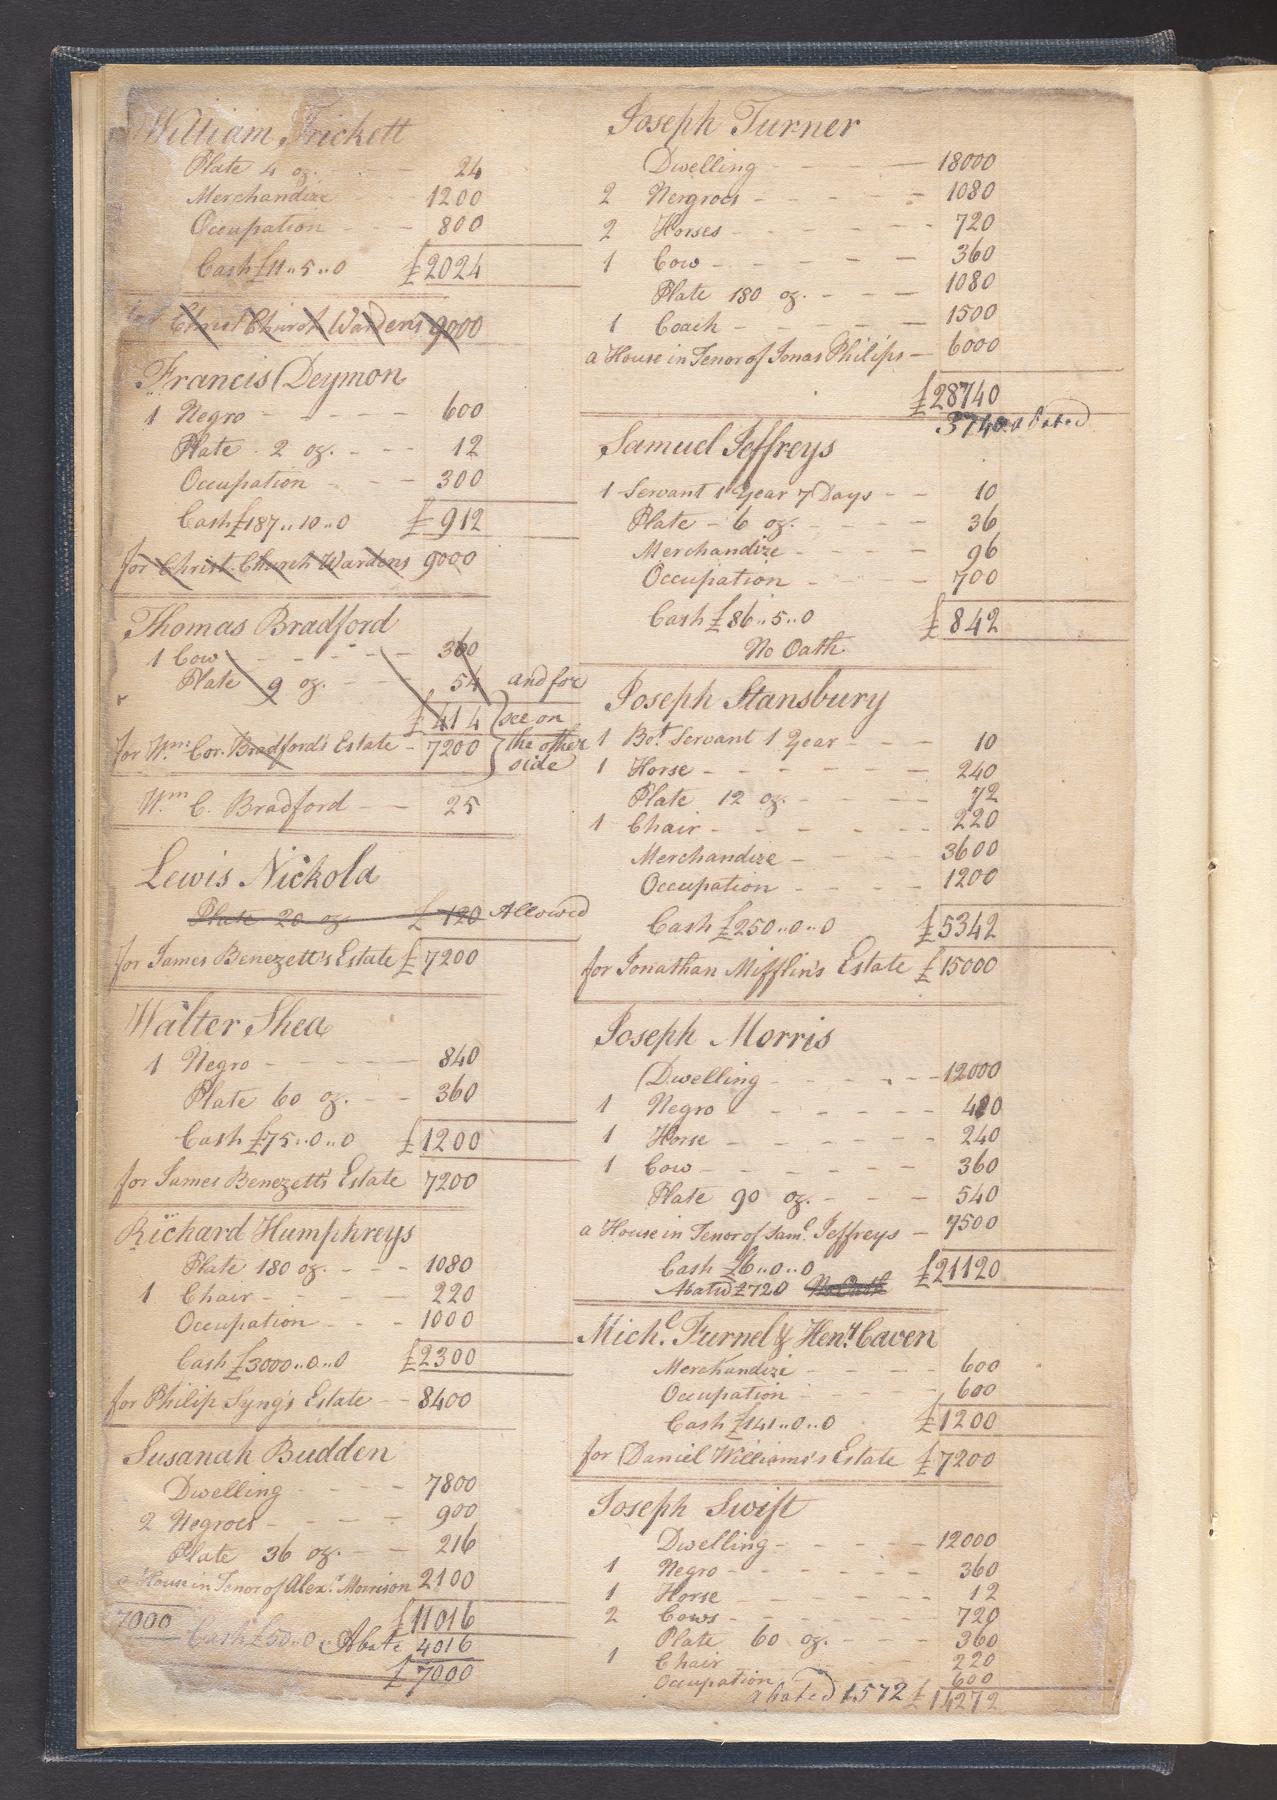 William Trickett
Plate 4 oz. - - 24
Merchandize - - 1200
Occupation - - 800
Cash £11..5..0 £2024
Christ Church Wardens 9000
Francis Deymon
1 Negro - - - - - 600
Plate 2 oz. - - - 12
Occupation - - - 300
Cash £187..10..0 £912
for Christ Church Wardens 9000
Thomas Bradford
1 Cow - - - - - 360
Plate 9 oz. - - - 54 and for
£414 see on
for Wm. Cor. Bradford's Estate - 7200 the other
side
Wm C. Bradford - - 25
Lewis Nickola
Plate 20 oz £120 Allowed
for James Benezett's Estate £7200
Walter Shea
1 Negro - - - - - 840
Plate 60 oz. - - - 360
Cash £75..0..0 £1200
for James Benezett's Estate 7200
Richard Humphreys
Plate 180 oz. - - - 1080
1 Chair - - - - 220
Occupation - - - 1000
Cash £3000..0..0 £2300
for Philip Syng's Estate - - 8400
Susanah Budden
Dwelling - - - - 7800
2 Negroes - - - - 900
Plate 36 oz. - - 216
a House in Tenor of Alexr. Morrison 2100
£11016
7000 Cash £50..0 Abate 4016
£7000
Joseph Turner
Dwelling - - - - 18000
2 Nergroes - - - - - 1080
2 Horses - - - - - - 720
1 Cow - - - - - 360
Plate 180 oz. - - - 1080
1 Coach - - - - - 1500
a House in Tenor of Jonas Philips - 6000
£28740
3740 abated
Samuel Jeffreys
1 Servant 1 Year 7 Days - - 10
Plate - 6 oz. - - - - 36
Merchandize - - - - 96
Occupation - - - - 700
Cash £86..5..0 £842
No Oath
Joseph Stansbury
1 Bot. Servant 1 Year - - - 10
1 Horse - - - - - - 240
Plate 12 oz. - - - - 72
1 Chair - - - - - - 220
Merchandize - - - - 3600
Occupation - - - - 1200
Cash £250..0..0 £5342
for Jonathan Mifflin's Estate £15000
Joseph Morris
Dwelling - - - - - 12000
1 Negro - - - - - - 480
1 Horse - - - - - - 240
1 Cow - - - - - - 360
Plate 90 oz. - - - 540
a House in Tenor of Saml. Jeffreys - 7500
Cash £6..0..0 £21120
Abated £720 No Oath
Michl. Furnel & Heny. Caven
Merchandize - - - - 600
Occupation - - - - 600
Cash £141..0..0 £1200
for Daniel Williams's Estate £7200
Joseph Swift
Dwelling - - - - - 12000
1 Negro - - - - - - 360
1 Horse - - - - - - 12
2 Cows - - - - - - 720
Plate 60 oz. - - - 360
1 Chair - - - 220
Occupation 600
abated 1572 £14272